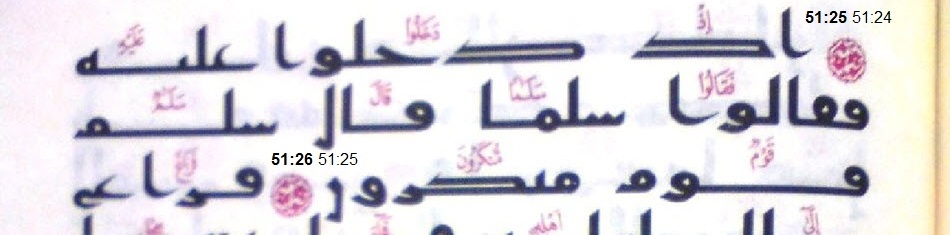 51:25 51:24
إذ دخلوا عليه
اذ دخلوا عليه
فقالوا سلما قال سلم
فقالوا سلما قال سلم
51:26 51:25
قوم منكرون فراغ
قوم منكرون فراغ
إلى أهله